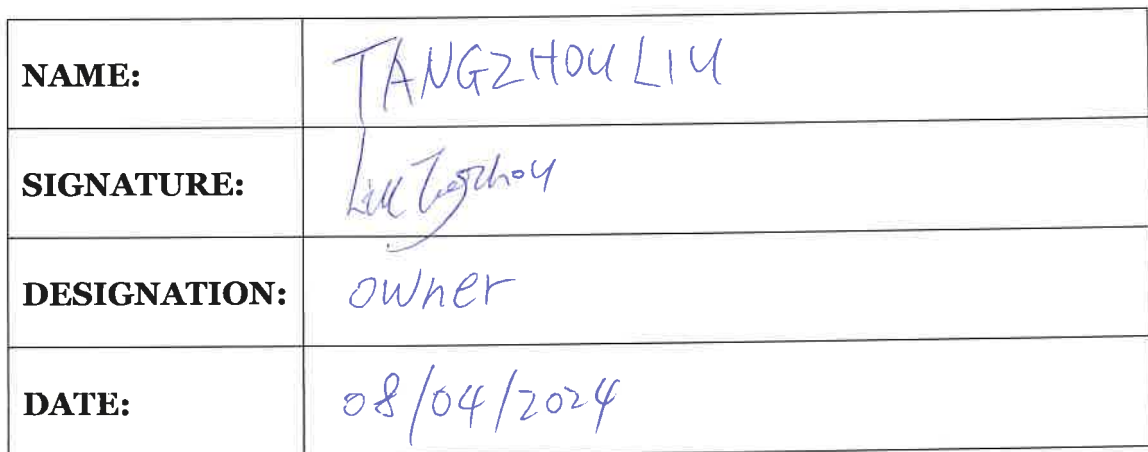 NAME: TANGZHOU LIU
SIGNATURE: Liu Tangzhou
DESIGNATION: owner
DATE: 08/04/2024